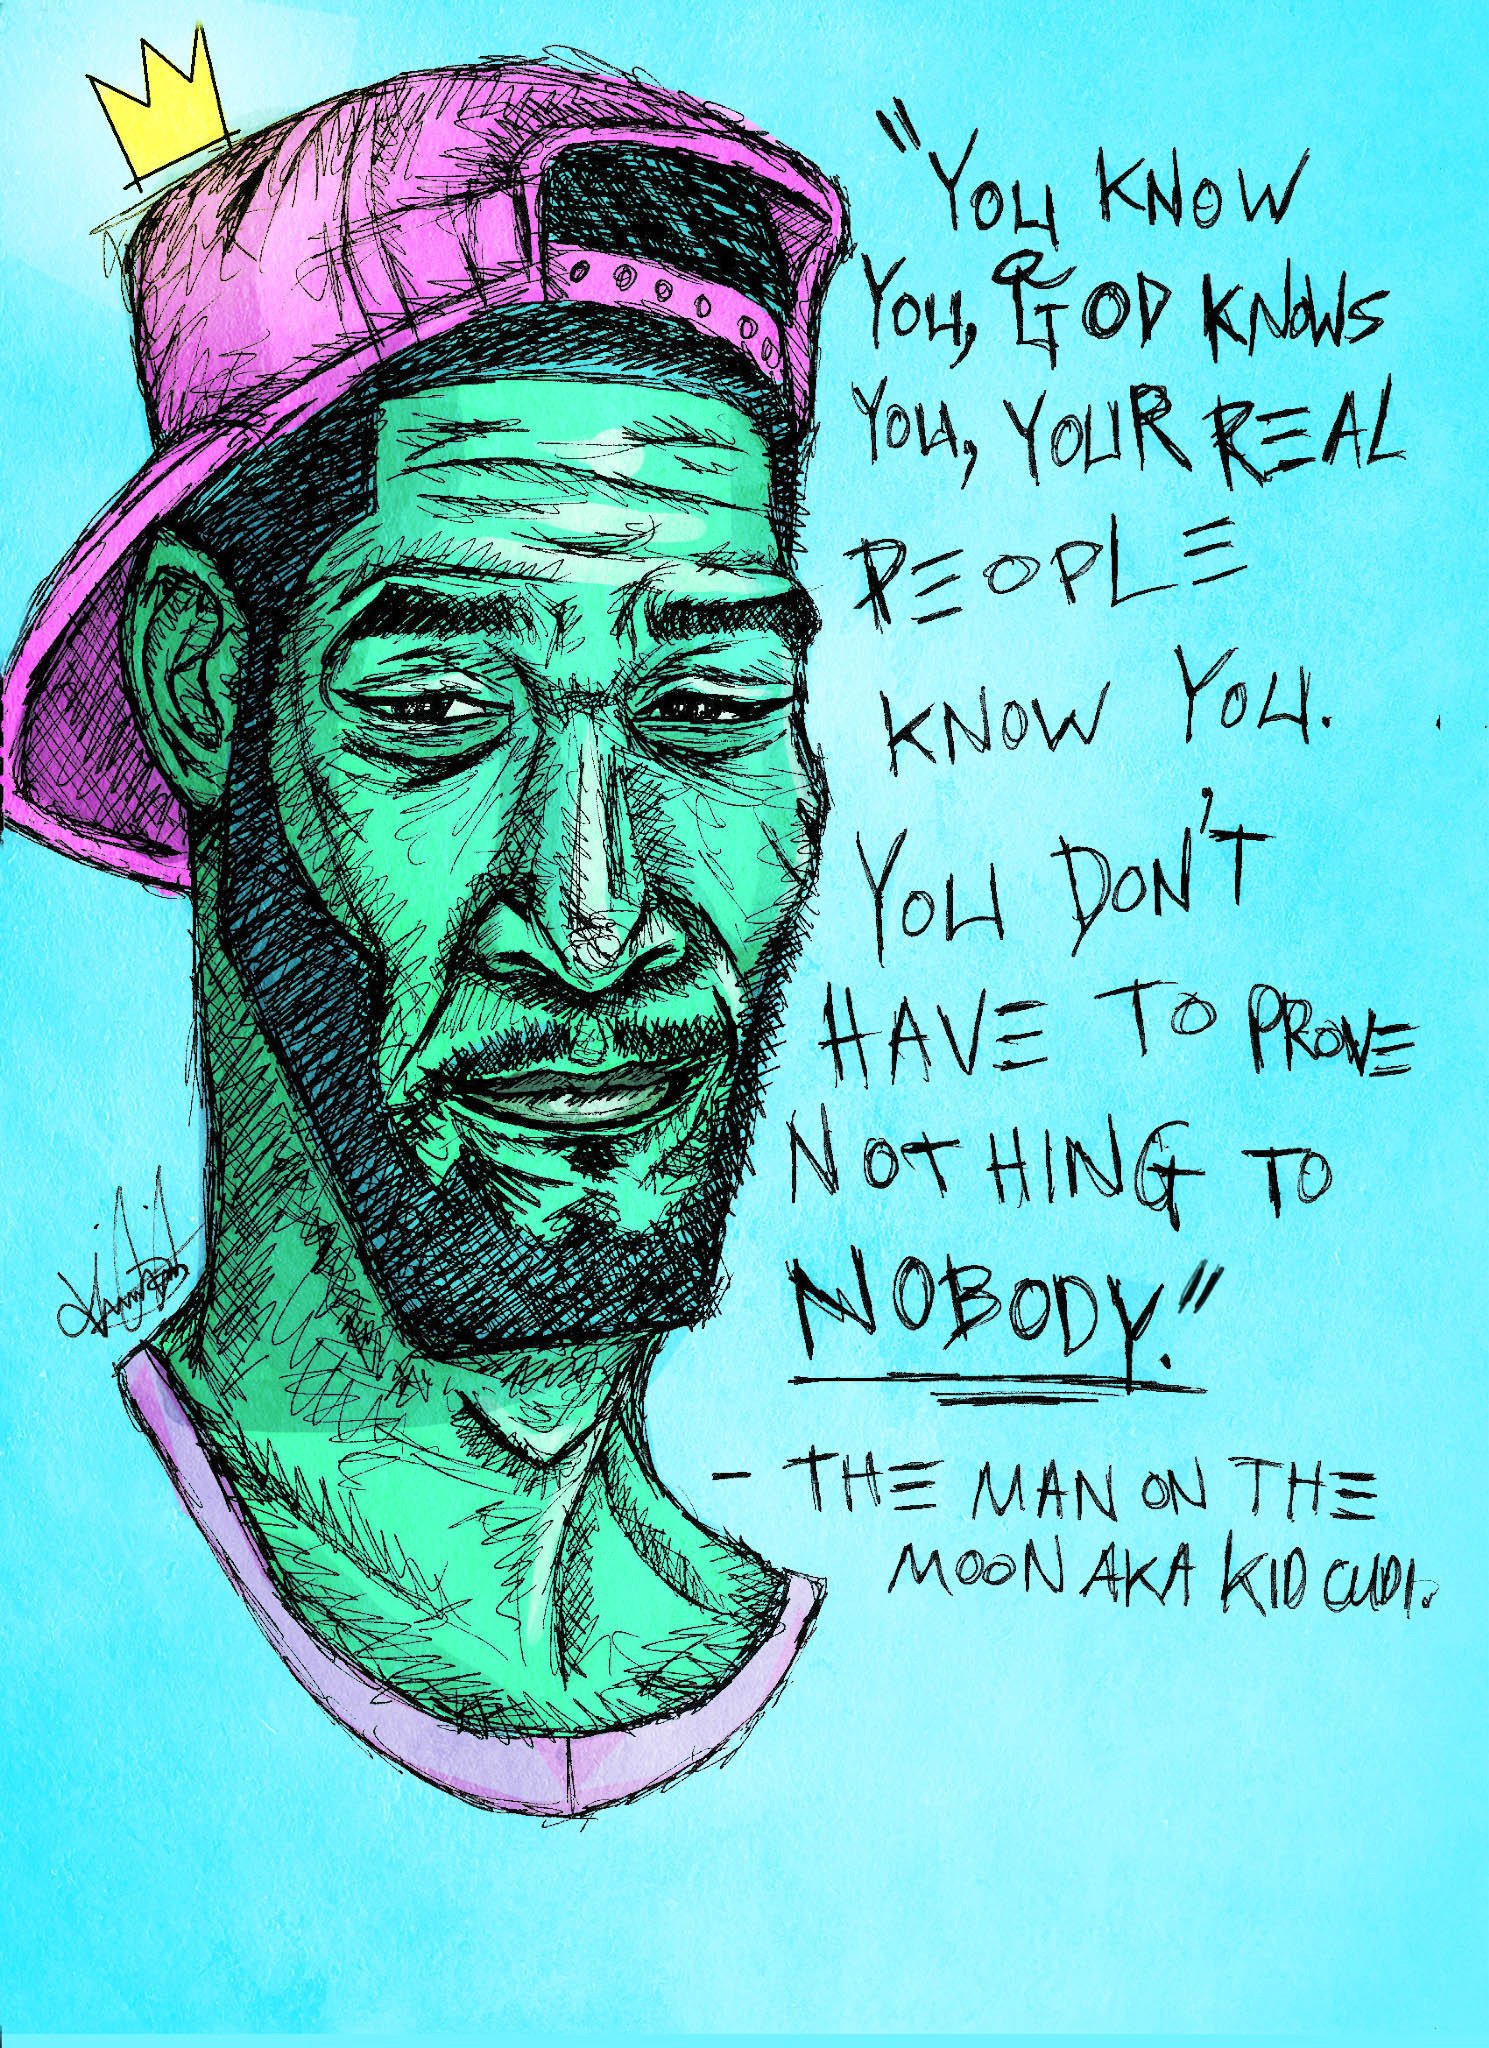 "YOU KNOW
YOU, GOD KNOWS
YOU, YOUR REAL
PEOPLE
KNOW YOU.
YOU DON'T
HAVE TO PROVE
NOTHING TO
NOBODY."
- THE MAN ON THE
MOON AKA KID CUDI.